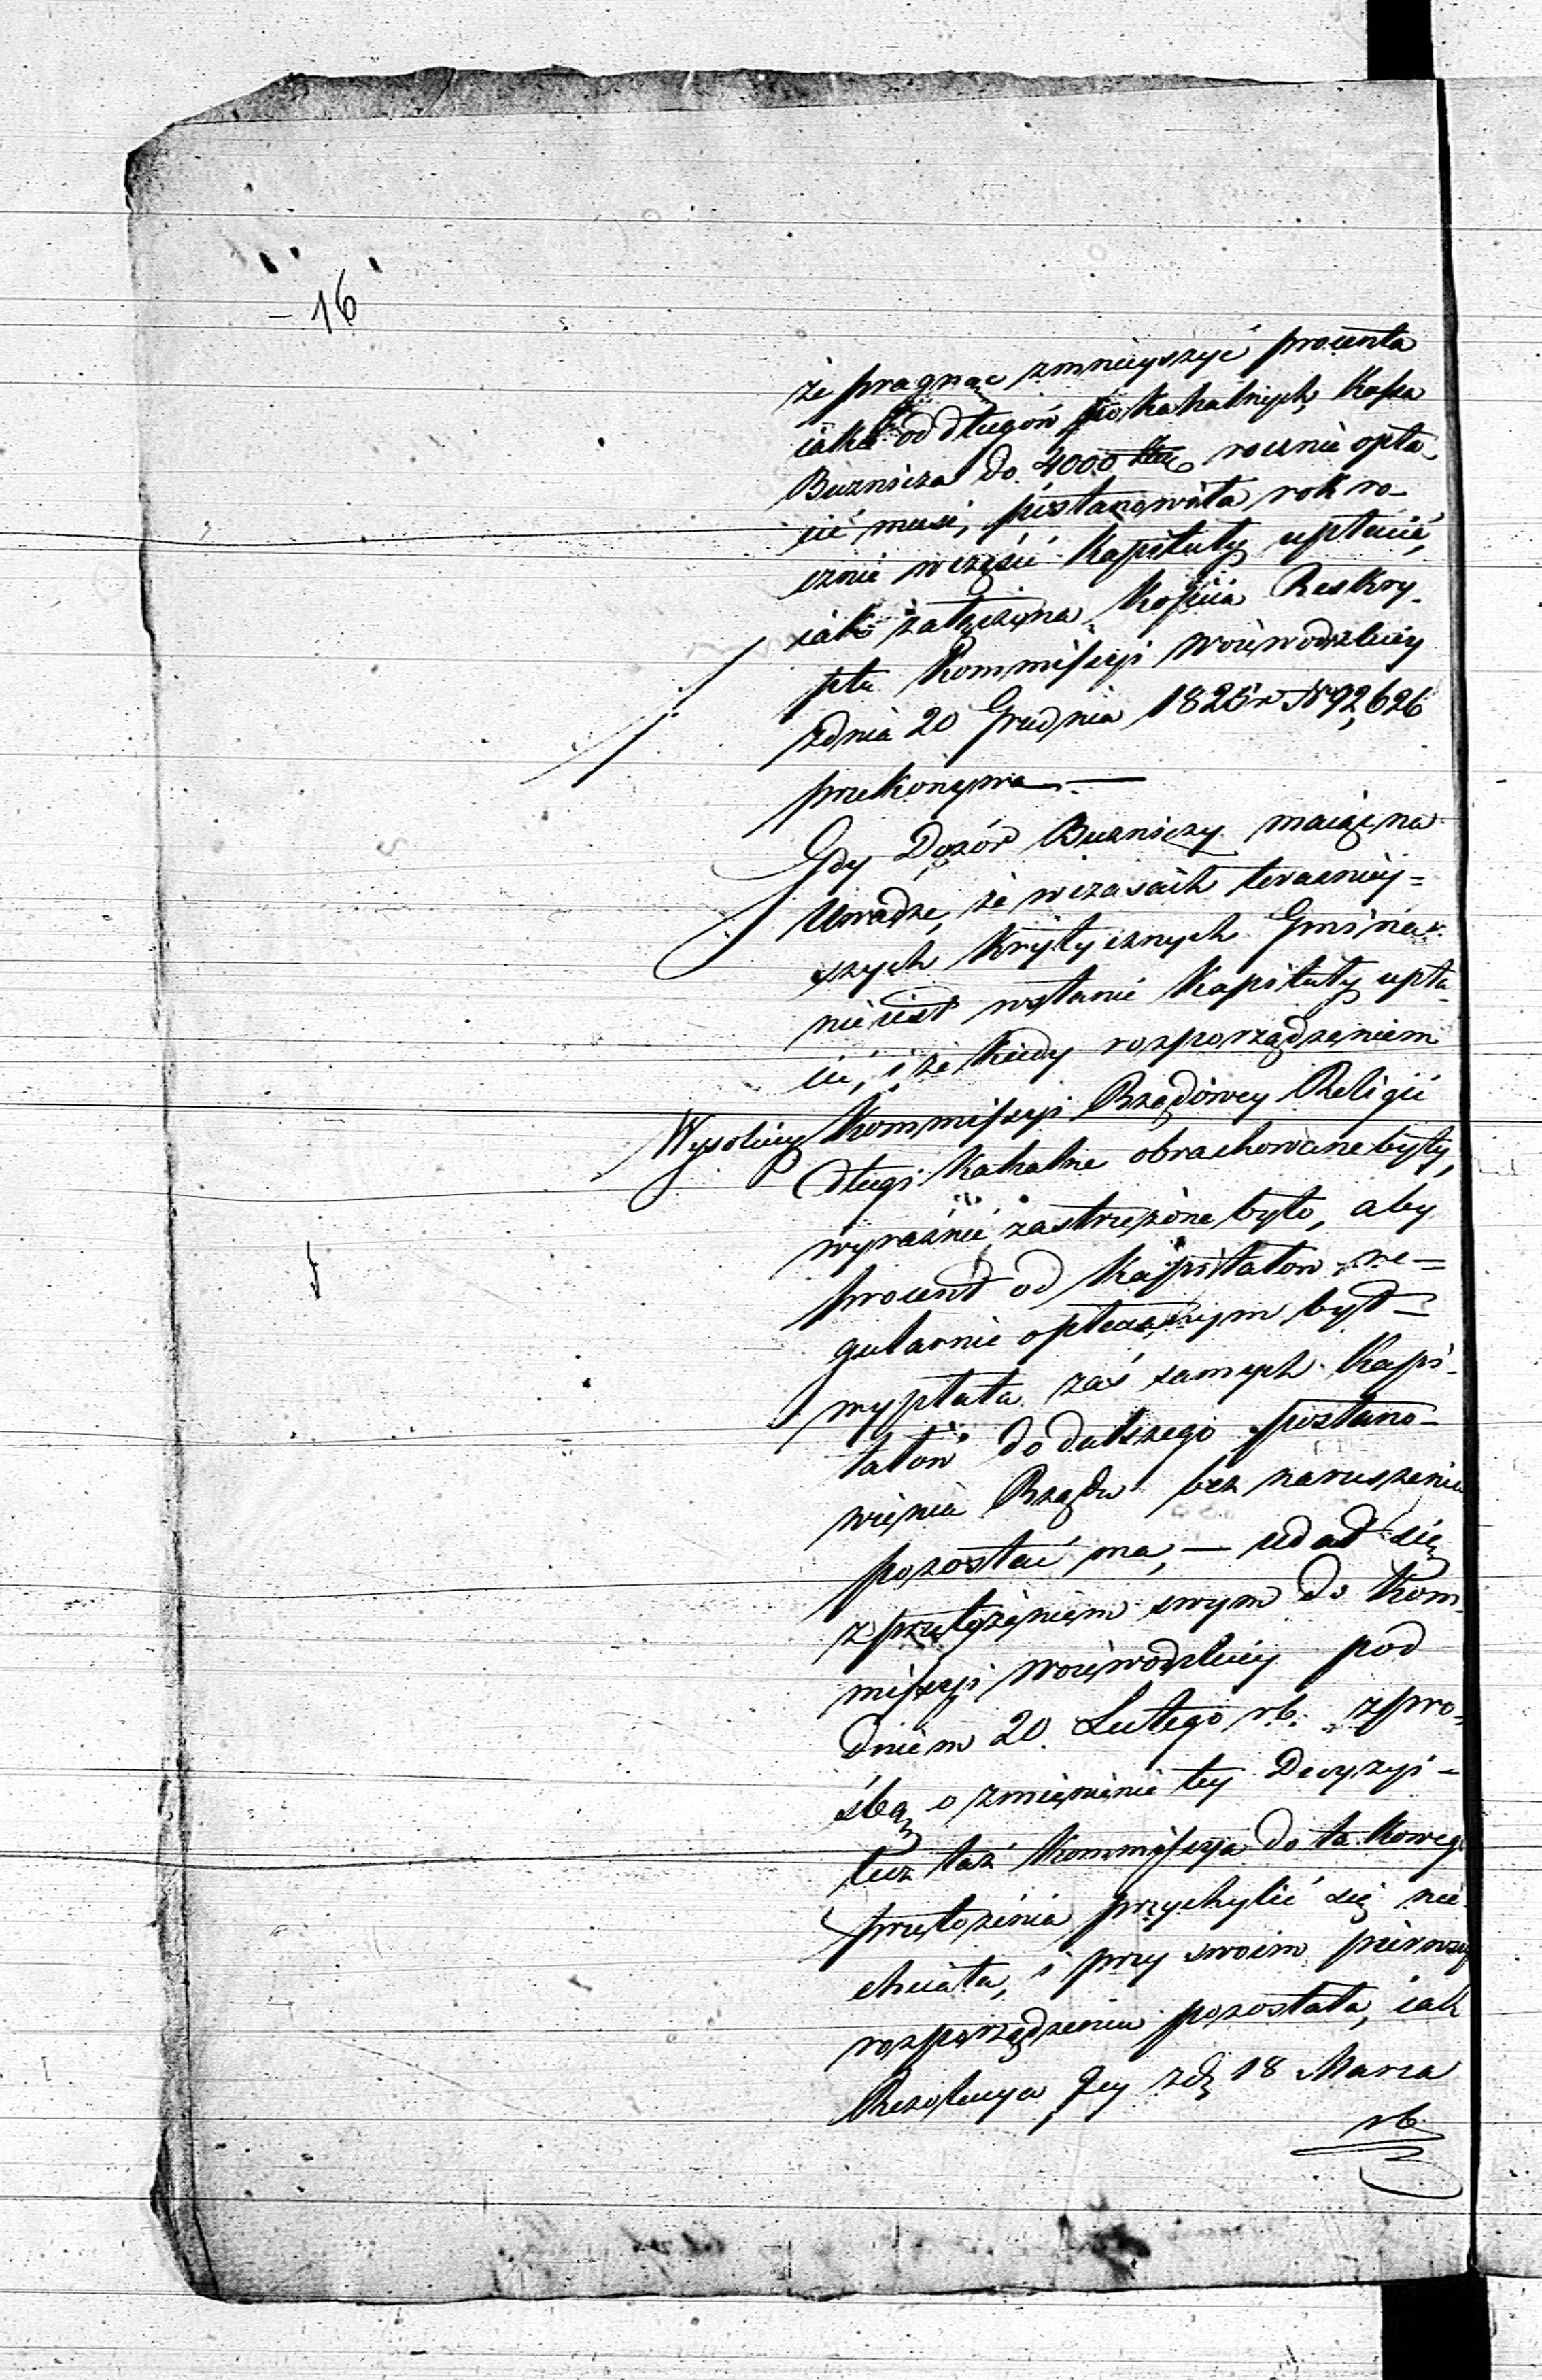 16
że pragnąc zmnieyszyć procenta
iakie od długów po kahalnych Kassa
Buznicza do 4000 rocznie opła-
cić musi, postanowiła rok ro-
cznie wczęści Kapituły upłacić,
iak załączona Kopiia Reskry-
ptu Kommissyi Woiewodzkiey
zdnia 20 Grudnia 1825 r. N 92,626
przekonywa. —
Gdy Dozór Buzniczy maiąc na
Uwadze, że wczasach teraźniey=
szych Krytycznych Gmina
nieiest wstanie Kapituły upła-
cić, i że kiedy rozporządzeniem
Wysokiey Kommissyi Rządowey Religii
długi Kahalne obrachowane były,
wyraźnie zastrzeżone było, aby
procent od Kapitałow re=
gularnie opłacanym był —
wypłata zaś samych Kapi-
tałów do dalszego postano-
wienia Rządu bez naruszenia
pozostać ma, — udał się
z przełożeniem swym do Kom-
missyi Woiewodzkiey pod
dniem 20. Lutego rb. z pro-
śbą o zmienienie tey Decyzyi —
lecz taż Kommissya do takowego
przełożenia przychylić się nie
chciała, i przy swoim pierwszym
rozporządzeniu pozostała, iak
Rezolucya Jey zd. 18 Marca
rb.